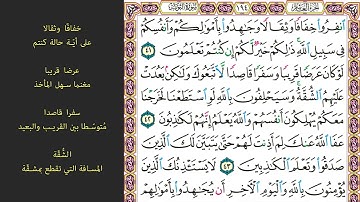 انفِرُوا۟ خِفَافًا وَثِقَالًا وَجَٰهِدُوا۟ بِأَمْوَٰلِكُمْ وَأَنفُسِكُمْ
فِى سَبِيلِ ٱللَّهِ ذَٰلِكُمْ خَيْرٌ لَّكُمْ إِن كُنتُمْ تَعْلَمُونَ ٤١
لَوْ كَانَ عَرَضًا قَرِيبًا وَسَفَرًا قَاصِدًا لَّٱتَّبَعُوكَ وَلَٰكِنۢ بَعُدَتْ
عَلَيْهِمُ ٱلشُّقَّةُ وَسَيَحْلِفُونَ بِٱللَّهِ لَوِ ٱسْتَطَعْنَا لَخَرَجْنَا
مَعَكُمْ يُهْلِكُونَ أَنفُسَهُمْ وَٱللَّهُ يَعْلَمُ إِنَّهُمْ لَكَٰذِبُونَ ٤٢
عَفَا ٱللَّهُ عَنكَ لِمَ أَذِنتَ لَهُمْ حَتَّىٰ يَتَبَيَّنَ لَكَ ٱلَّذِينَ
صَدَقُوا۟ وَتَعْلَمَ ٱلْكَٰذِبِينَ ٤٣ لَا يَسْتَـْٔذِنُكَ ٱلَّذِينَ
يُؤْمِنُونَ بِٱللَّهِ وَٱلْيَوْمِ ٱلْـَٔاخِرِ أَن يُجَٰهِدُوا۟ بِأَمْوَٰلِهِمْ
خفافًا وثقالا
على أيّـة حالة كنتم
عرضا قريبا
مغنما سهل المأخذ
سفرا قاصدا
مُتوسّطا بين القريب والبعيد
الشُّقّة
المسافة التي تقطع بمشقّة